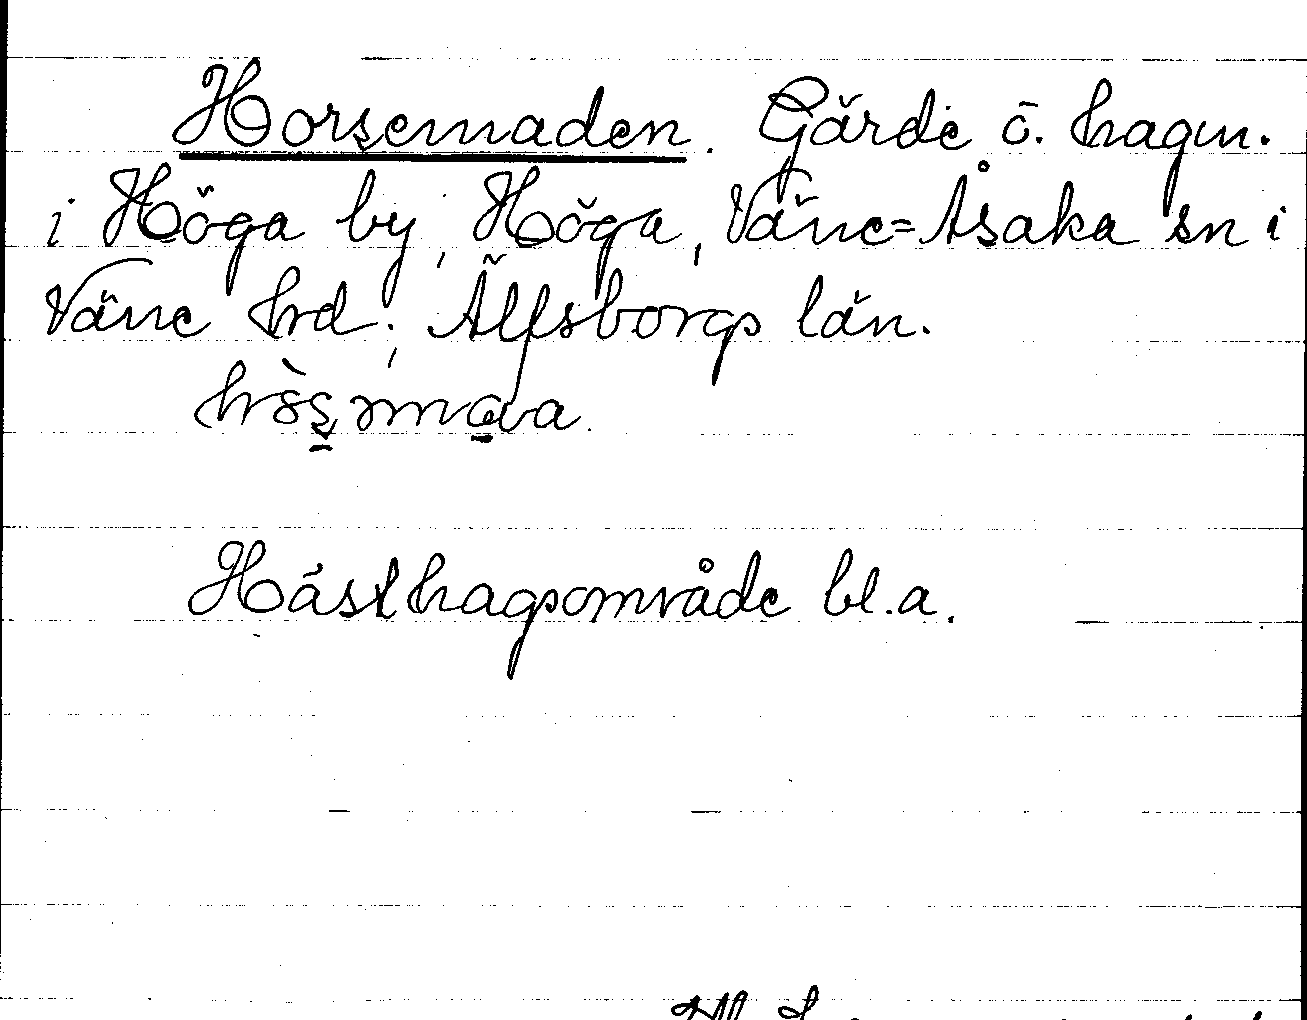 Horsemaden. Gärde o. hagm.
i Höga by, Höga, Väne=Åsaka sn i
Väne hrd; Älfsborgs län.
Hästhagsområde bl.a.